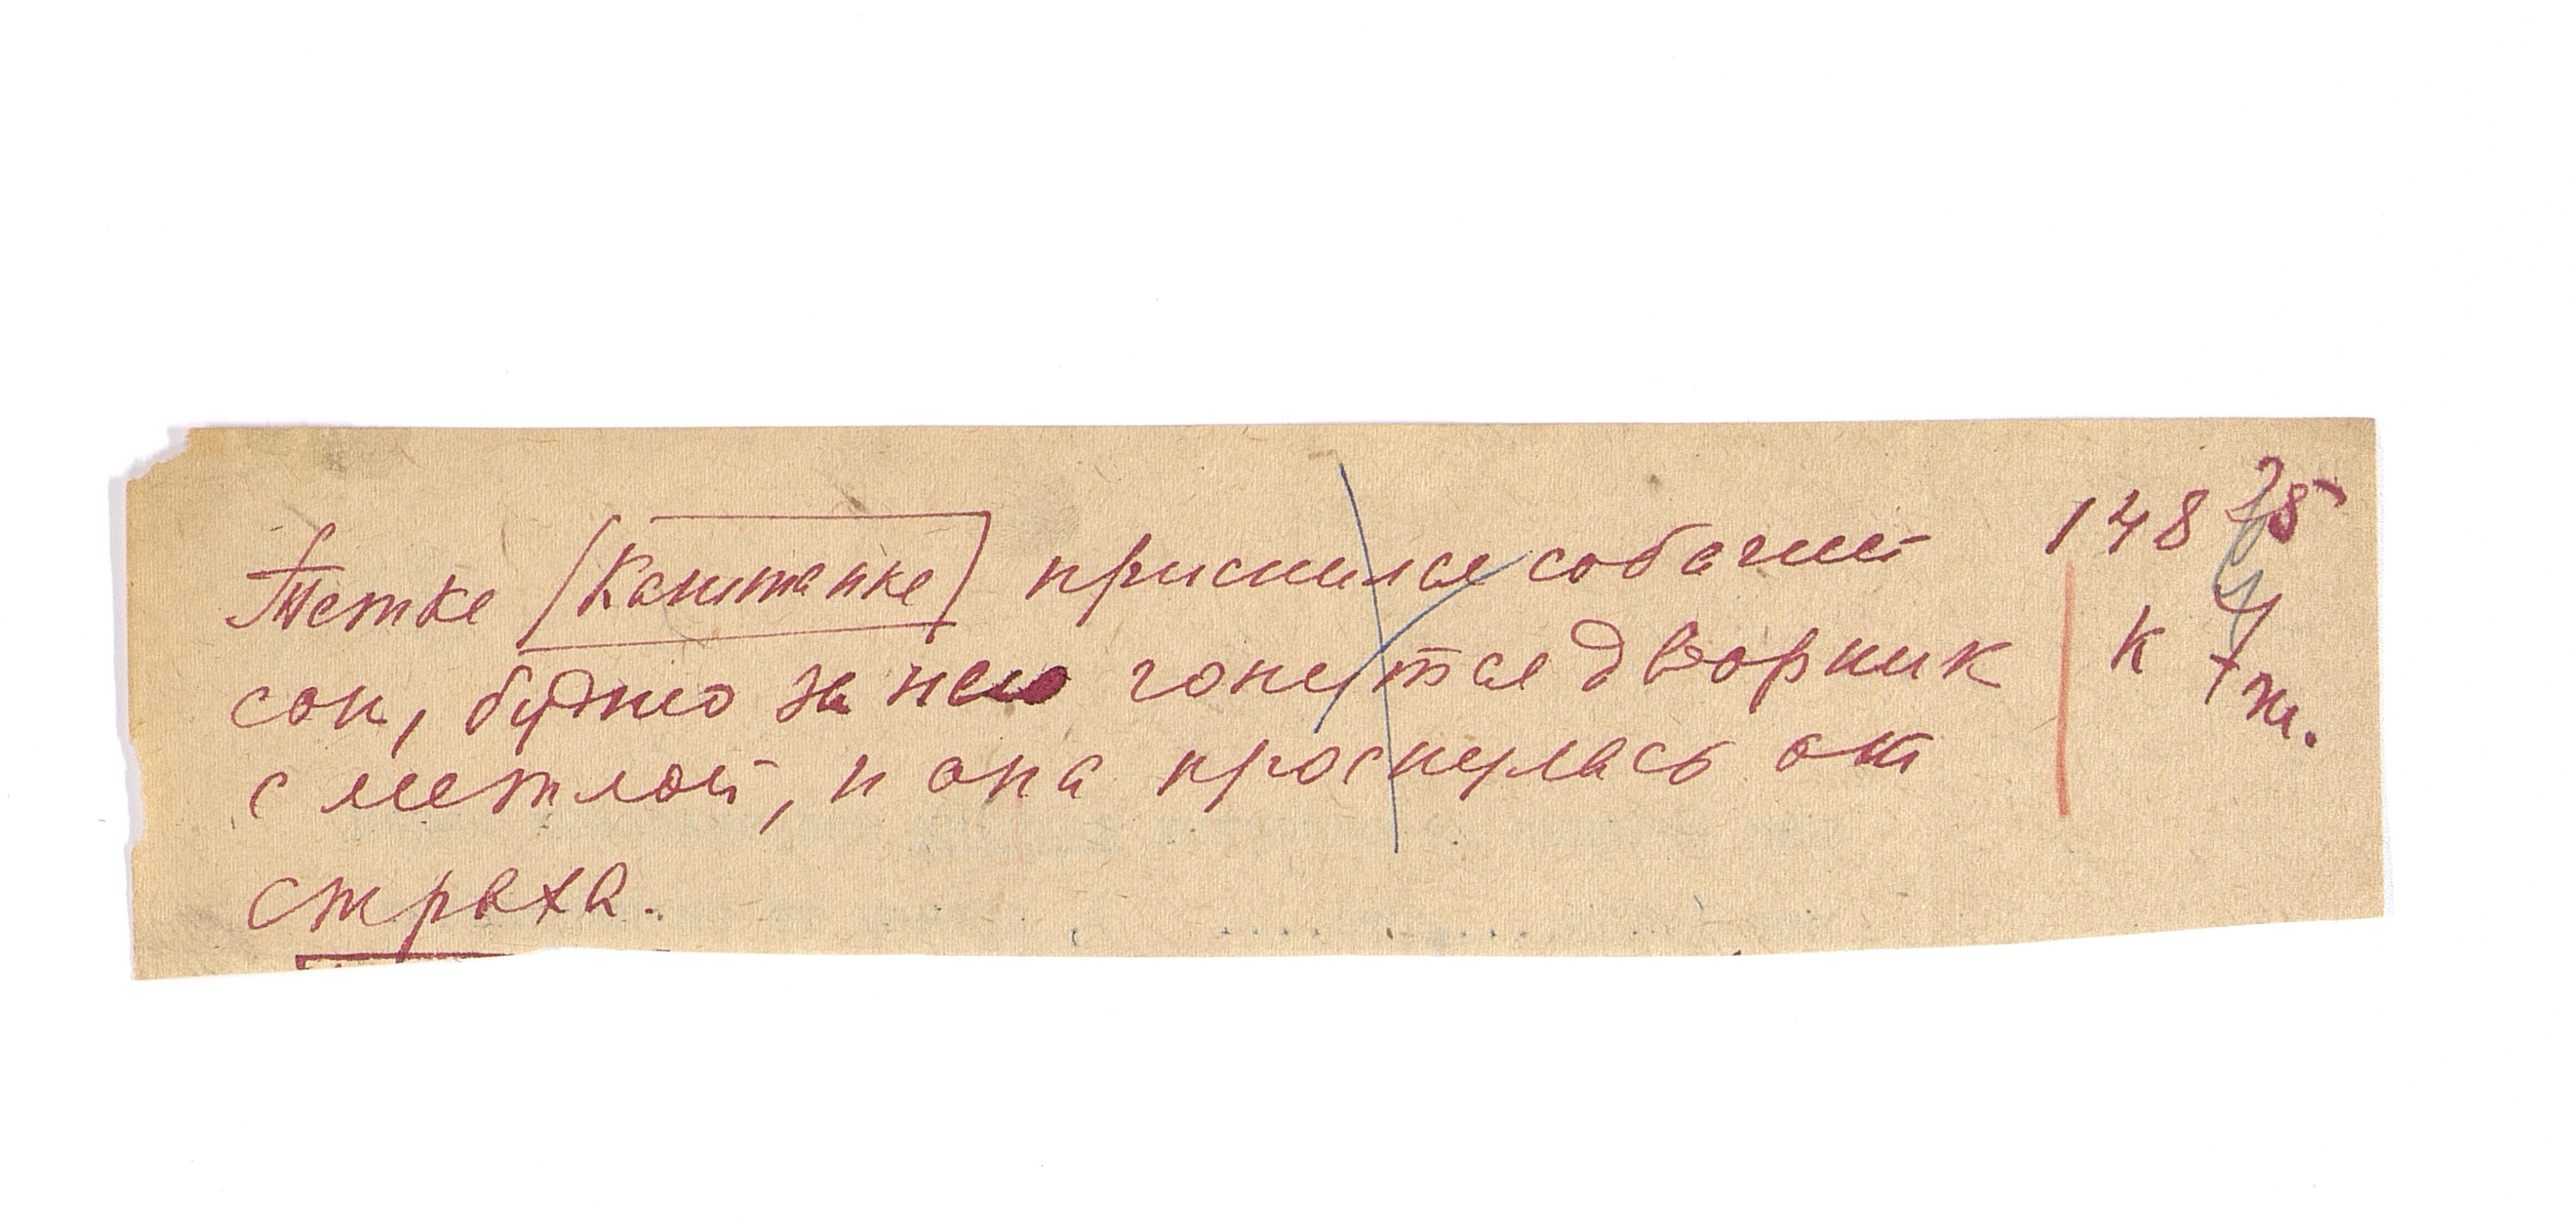 Тетке [Каштанке] приснился собачий 148
сон, будто за нею гонится дворник к
с метлой, и она проснулась от
страха.